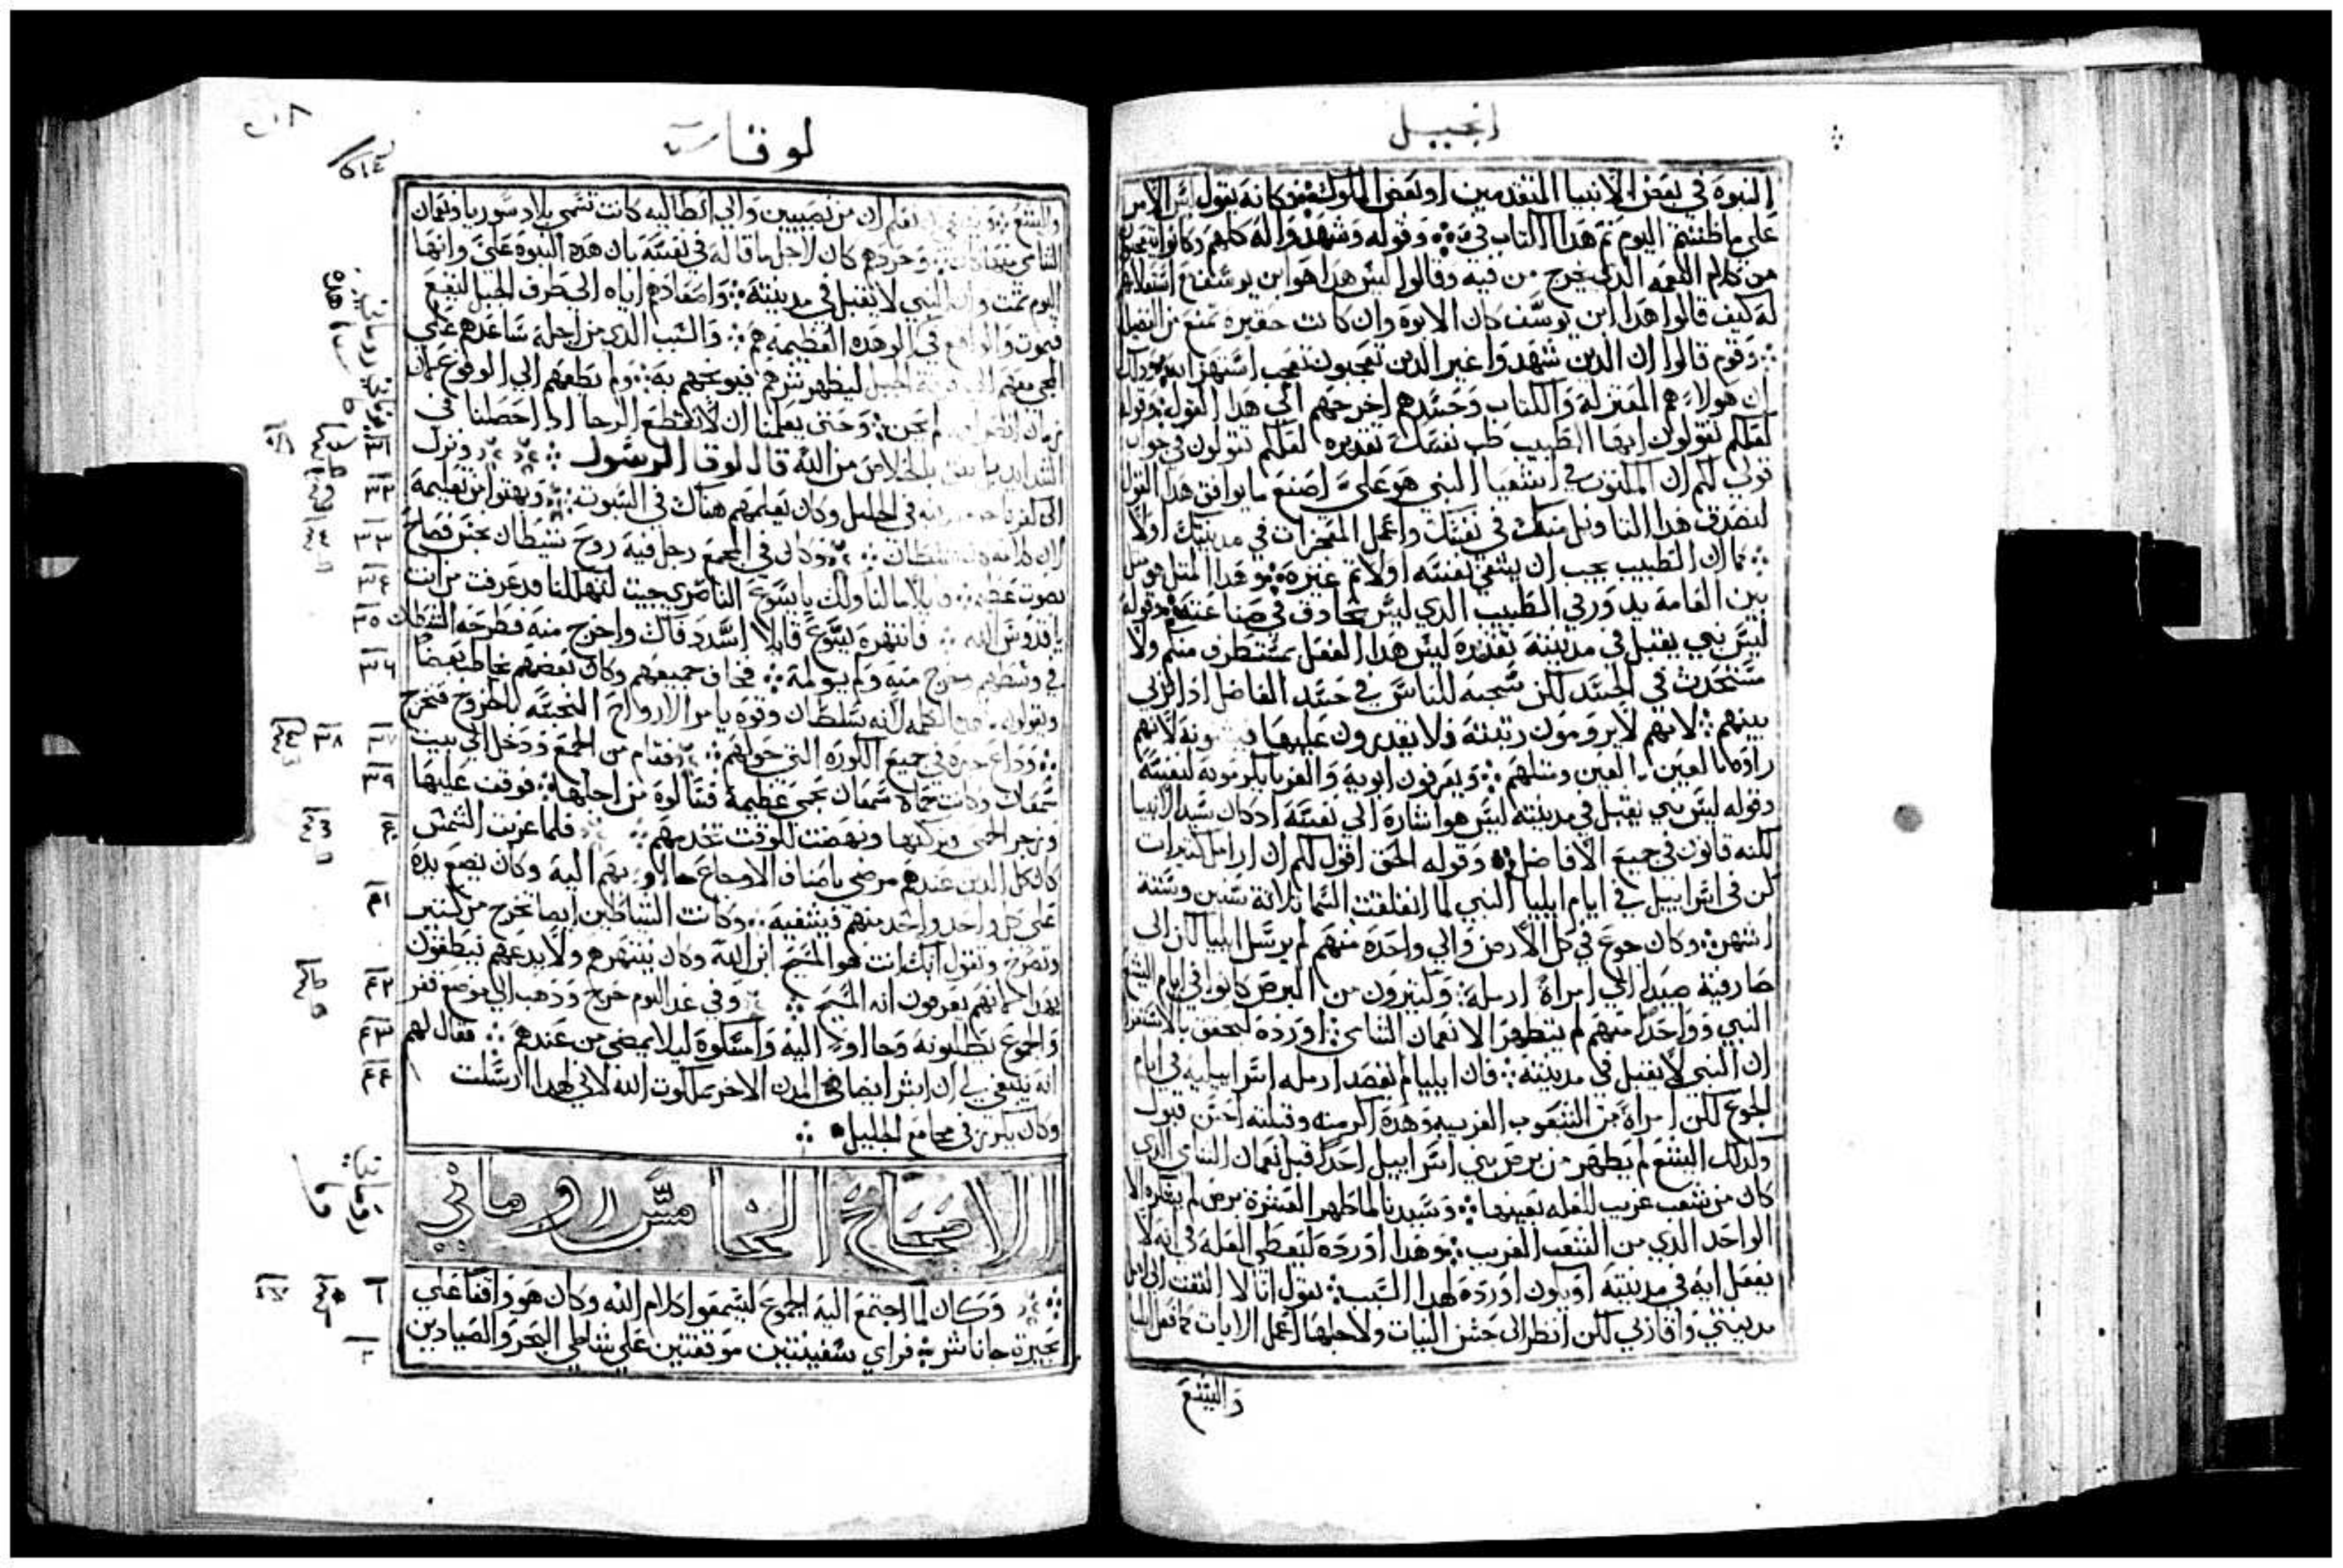 انجيل
النبوة في بعض الانبيا المتقدمين او بعض الملوك وكانه يقول ليس الامر
على ما ظننتم اليوم تم هذا الكتاب في وقوله وشهدوا له كلهم وكانوا يتعجبون
من كلام النعمه الذي يخرج من فيه وقالوا ليس هذا هو ابن يوسف
له كيف قالوا هذا ابن يوسف كان الابوة وان كانت حقيرة تمنع من
وقوم قالوا ان الذين شهدوا غير الذين تعجبون تعجب استهزا
ان هولاء هم المعتزلة والكتاب وحسدهم اخرجهم الى هذا القول وقوله
لعلكم تقولون ايها الطبيب طب نفسك تقديره لعلكم تقولون في جواب
قولي لكم ان المكتوب في اشعيا النبي هو علي اصنع ما يوافق هذا القول
لنصدق هذا التاويل منك في نفسك واعمل المعجزات في مدينتك اولا
كما ان الطبيب يجب ان يشفي نفسه اولا ثم غيره وهذا المثل هو مثل
بين العامة يدور في الطبيب الذي ليس بحاذق في صناعته وقوله
ليس نبي يقبل في مدينته تقديره ليس هذا الفعل بمستطرف منكم ولا
مستحدث في الحسد لكن سجيه للناس في حسد الفاضل اذا ربي
بينهم لانهم لا يرومون رتبته فلا يقدرون عليها لانهم
راوه بالعين ويعرفون ابويه والغربا يكرمونه لنفسه
وقوله ليس نبي يقبل في مدينته ليس هو اشارة الى نفسه اذ كان سيد الانبيا
لكنه قانون في جميع الافاضل وقوله الحق اقول لكم ان ارامل كثيرات
كن في اسراييل في ايام ايليا النبي لما انغلقت السما ثلاثة سنين وستة
اشهر وكان جوع في كل الارض والى واحدة منهم لم يرسل ايليا لكن الى
صارفية صيدا الى امراة ارملة وكثيرون من البرص كانوا في ايام اليشع
النبي وواحدا منهم لم يتطهر الا نعمان الشامي اورده ليحقق
ان النبي لا يقبل في مدينته فان ايليا لم يقصد ارمله اسراييليه في ايام
الجوع لكن امراة من الشعوب الغريبه وهذه اكرمته وقبلته احسن قبول
وكذلك اليشع لم يطهر من برص بني اسراييل احدا قبل نعمان الشامي الذي
كان من شعب غريب للعله بعينها وسيدنا لما طهر العشرة برص لم يشكره الا
الواحد الذي من الشعب الغريب وهذا اورده ليعطي العلة في انه لا
يفعل ايه في مدينته او يكون اورده لهذا السبب يقول انا لا التفت الى اهل
مدينتي واقاربي لكن انظر الى حسن النيات ولاجلها اعمل الايات كما فعل ايليا
واليشع
لوقا
واليشع نعلم ان من نصيبين والى انطاكيه كانت تسمى بلاد سوريا ونعمان
الشامي وحردهم كان لاجل ما قاله في نفسه بان هذه النبوة علي وانها
اليوم تمت وان النبي لا يقبل في مدينته واصعادهم اياه الى طرف الجبل ليقع
فيموت والواقع في الوهده العظيمه هم والسبب الذي من اجله ساعدهم على
المجي معهم الى الجبل ليظهر شرهم فيوبخهم به ولم يطعهم الى الوقوع
وحتى يعلمنا ان لا نقطع الرجا اذا حصلنا في
الشدايد بالخلاص من الله قال لوقا الرسول ونزل
الى كفرناحوم مدينه في الجليل وكان يعلمهم هناك في السبوت وبهتوا من تعليمه
ان كلامه بسلطان وكان في المجمع رجل فيه روح شيطان نجس فصاح
بصوت عظيم قايلا ما لنا ولك يا يسوع الناصري جيت لتهلكنا قد عرفت من انت
يا قدوس الله فانتهره يسوع قايلا اسدد فاك واخرج منه فطرحه الشيطان
في وسطهم وخرج منه ولم يولمه فخاف جميعهم وكان بعضهم يخاطب بعضا
ويقولون ما هذه الكلمه لانه بسلطان وقوه يامر الارواح النجسه للخروج فتخرج
وذاع خبره في جميع الكورة التي حولهم فقام من المجمع ودخل الى بيت
سمعان وكانت حماة سمعان بحمى عظيمة فسالوه من اجلها فوقف عليها
وزجر الحمى وتركتها ونهضت للوقت تخدمهم فلما غربت الشمس
كان كل الذين عندهم مرضى باصناف الاوجاع جاوا بهم اليه وكان يضع يده
على كل واحد واحد منهم فيشفيه وكانت الشياطين ايضا تخرج من كثير
وتصرخ وتقول انك انت هو المسيح ابن الله وكان ينتهرهم ولا يدعهم ينطقون
بهذا لانهم يعرفون انه المسيح وفي غد اليوم خرج وذهب الى موضع قفر
والجموع يطلبونه وجاوا اليه وامسكوه ليلا يمضي من عندهم فقال لهم
انه ينبغي لي ان ابشر ايضا في المدن الاخر بملكوت الله لاني لهذا ارسلت
وكان يكرز في مجامع الجليل
الاصحاح الخامس روماني
وكان لما اجتمع اليه الجموع ليسمعوا كلام الله وكان هو واقفا على
بحيرة جاناشر فراي سفينتين موقفتين على شاطي البحر والصيادين